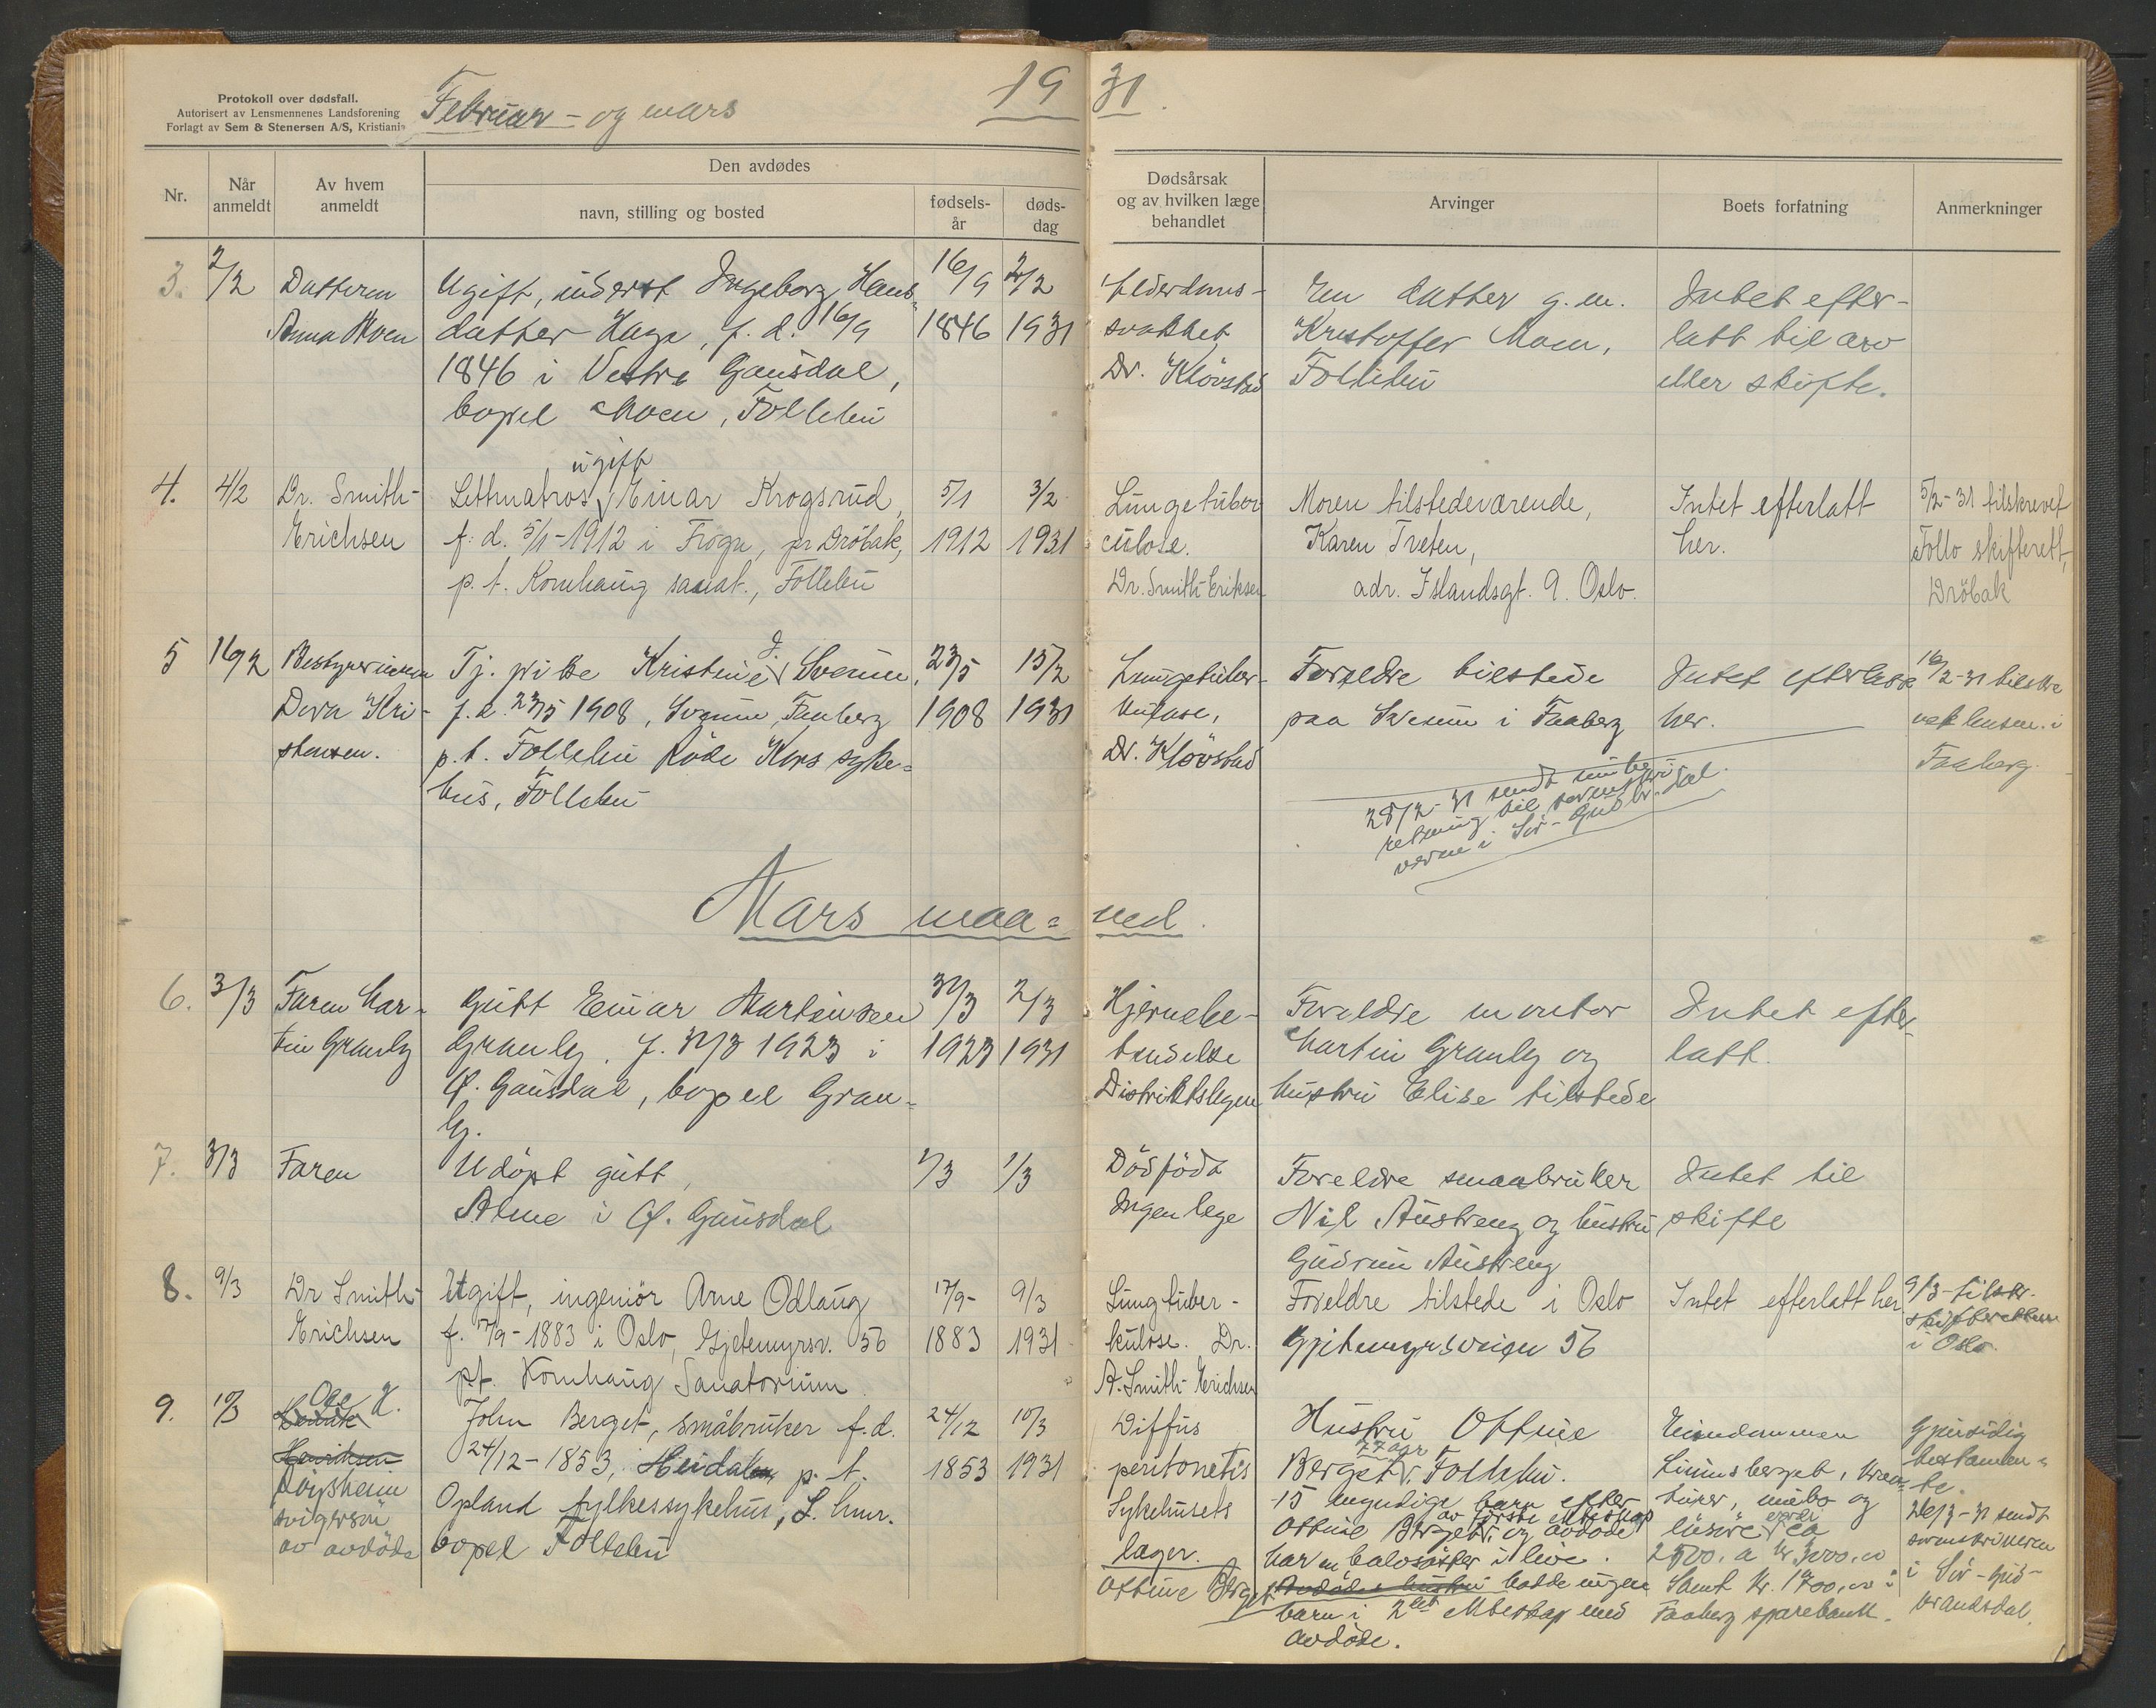 Protokoll over dødsfall.
Autorisert av Lensmennenes Landsforening
Forlagt av Sem & Stenersen A/S, Kristiania
Februar - og mars
19 31.
Nr.
Når
anmeldt
Av hvem
anmeldt
Den avdødes
navn, stilling og bosted
fødsels-
år
døds-
dag
Dødsårsak
og av hvilken læge
behandlet
Arvinger
Boets forfatning
Anmerkninger
3.
2/2
Datteren
Anna Moen
Ugift, inderst Ingeborg Hans-
datter Haga, f. d. 16/9
1846 i Vestre Gausdal,
bopel Moen, Follebu
16/9
1846
2/2
1931
Alderdoms-
svakhet
Dr. Klövstad
En datter g. m.
Kristoffer Moen,
Follebu
Intet efter-
latt til arv
eller skifte.
4.
4/2
Dr. Smith-
Erichsen
ugift
Lettmatros Einar Krogsrud,
f. d. 5/1-1912 i Frogn, pr Dröbak,
p. t. Kornhaug sanat., Follebu
5/1
1912
3/2
1931
Lungetuber
culose.
Dr. Smith-Eriksen
Moren tilstedeværende,
Karen Tveten,
adr. Islandsgt. 9. Oslo.
Intet efterlatt
her.
5/2-31 tilskrevet
Follo skifterett,
Dröbak
5
16/2
Bestyrerinnen
Dora Kri-
stensen.
J.
Tj. pike Kristine Svenum,
f. d. 23/5 1908, Svenum Faaberg
p. t. Follebu Röde Kors syke-
hus, Follebu
23/5
1908
15/2
1931
Lungetuber-
kulose,
Dr. Klövstad
Foreldre tilstede
paa Svenum i Faaberg
Intet efterlatt
her.
16/2-31 tilskre
vet lensm. i
Faaberg.
28/2-31 sendt innbe
retning til sorenskri
veren i Sör-Gudbr.dal.
Mars maa- ned.
6.
3/3
Faren Mar-
tin Granly
Gutt Einar Martinsen
Granly. f. 30/3 1923 i
Ö. Gausdal, bopel Gran-
ly.
30/3
1923
2/3
1931
Hjernebe-
tendelse
Distriktslegen
Foreldre montör
Martin Granly og
hustru Elise tilstede
Intet efter-
latt.
7.
3/3
Faren
Udöpt gutt,
Alme i Ö. Gausdal
1/3
1/3
Dödföda
Ingen lege
Foreldre smaabruker
Nil Austreng og hustru
Gudrun Austreng
Intet til
skifte
8.
9/3
Dr Smith-
Erichsen
Ugift, ingeniör Arne Odlaug
f. 17/9-1883 i Oslo, Gjetemyrsv. 56
p.t. Kornhaug Sanatorium.
17/9-
1883
9/3
1931
Lungtuber-
kulose. Dr.
A. Smith-Erichsen
Foreldre tilstede i Oslo
Gjetemyrsveien 56
Intet efterlatt her
9/3-tilskr.
skifteretten
i Oslo.
9.
10/3
Ole H.
Henrik
Henriksen
svigersön
av avdöde
John Berget, småbruker f. d.
24/12-1853, i Heidal p. t.
Opland fylkessykehus, L.hmr.
bopel Follebu
24/12
1853
10/3
1931
Diffus
peritonetis
Sykehusets
læger.
Hustru Ottine
77 aar
Berget, Follebu.
15 myndige barn efter
av förste ekteskap
Ottine Berget og avdöde
har en halvsöster i live.
Ottine Berget Avdödes hustru hadde ingen
barn i 2det ekteskap med
avdöde.
Eiendommen
Linnsberget, krea-
turer, innbo og
lösöre verdi ca
2500. a kr. 3000,00
Samt kr. 1700,00 i
Faaberg sparebank.
Gjensidig
testamen-
te.
26/3-31 sendt
sorenskriveren
i Sör-Gud-
brandsdal.